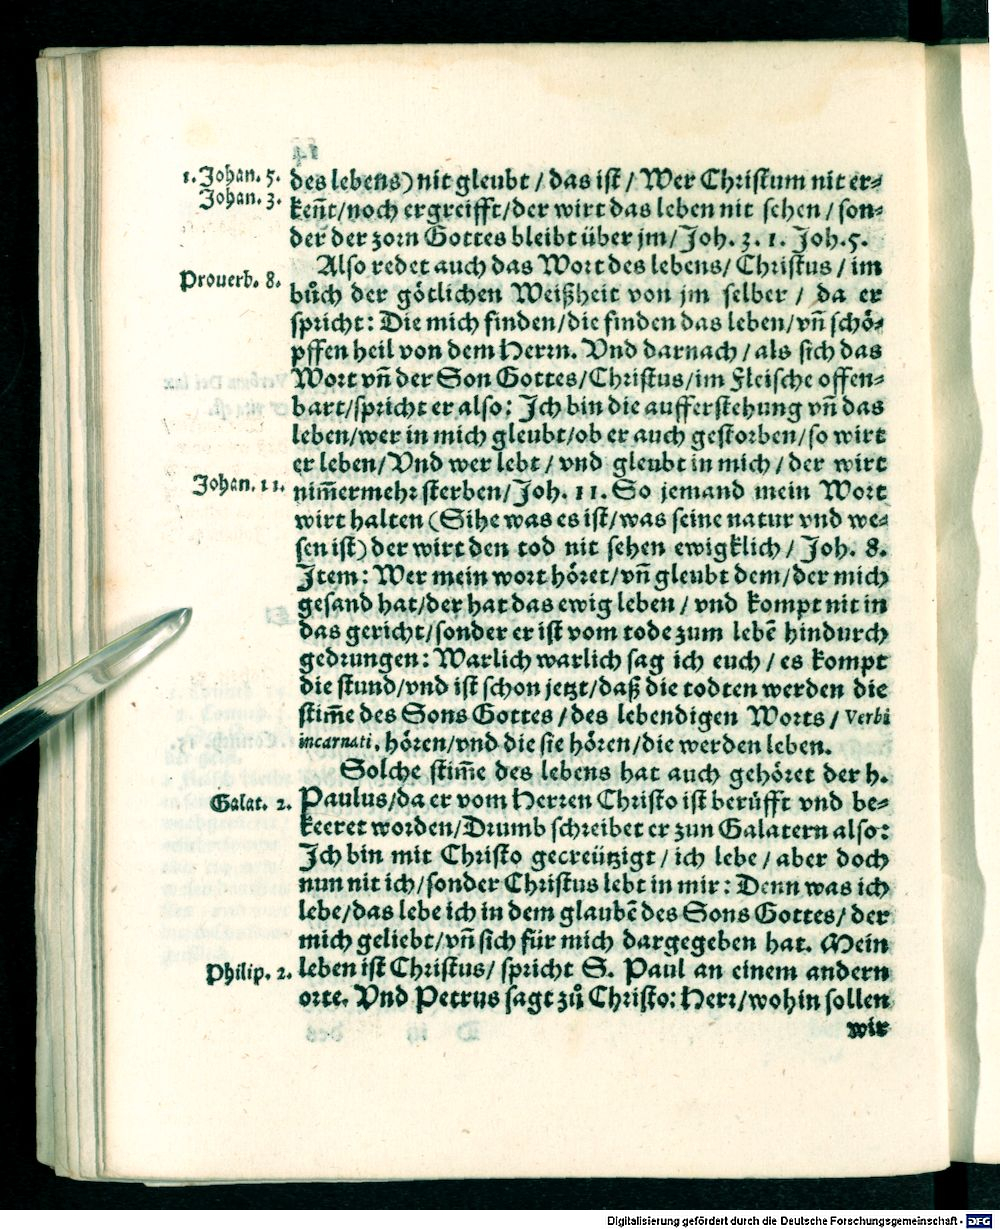 1. Johan. 5.
Johan. 3.
des lebens) nit gleubt / das ist / Wer Christum nit er-
keñt/noch ergreifft/der wirt das leben nit sehen / son-
der der zorn Gottes bleibt über jm/ Joh. 3. 1. Joh. 5.
Prouerb. 8.
Also redet auch das Wort des lebens/ Christus / im
bůch der götlichen Weißheit von jm selber / da er
spricht: Die mich finden/die finden das leben/vñ schö-
pffen heil von dem Herrn. Vnd darnach / als sich das
Wort vñ der Son Gottes/Christus/im Fleische offen-
bart/spricht er also: Ich bin die aufferstehung vñ das
leben/wer in mich gleubt/ob er auch gestorben/so wirt
er leben/ Vnd wer lebt / vnd gleubt in mich / der wirt
Johan. 11.
nim̃ermehr sterben/ Joh. 11. So jemand mein Wort
wirt halten (Sihe was es ist/was seine natur vnd we-
sen ist) der wirt den tod nit sehen ewigklich / Joh. 8.
Item: Wer mein wort höret/vñ gleubt dem/der mich
gesand hat/der hat das ewig leben / vnd kompt nit in
das gericht/sonder er ist vom tode zum lebẽ hindurch
gedrungen: Warlich warlich sag ich euch / es kompt
die stund/vnd ist schon jetzt/daß die todten werden die
stim̃e des Sons Gottes / des lebendigen Worts / Verbi
incarnati, hören/vnd die sie hören/die werden leben.
Solche stim̃e des lebens hat auch gehöret der h.
Galat. 2.
Paulus/da er vom Herren Christo ist berüfft vnd be-
keeret worden/Drumb schreibet er zun Galatern also:
Ich bin mit Christo gecreützigt / ich lebe / aber doch
nun nit ich/sonder Christus lebt in mir: Denn was ich
lebe/das lebe ich in dem glaubẽ des Sons Gottes / der
mich geliebt/vñ sich für mich dargegeben hat. Mein
Philip. 2.
leben ist Christus/ spricht S. Paul an einem andern
orte. Vnd Petrus sagt zů Christo: Herr/wohin sollen
wir
Digitalisierung gefördert durch die Deutsche Forschungsgemeinschaft - DFG